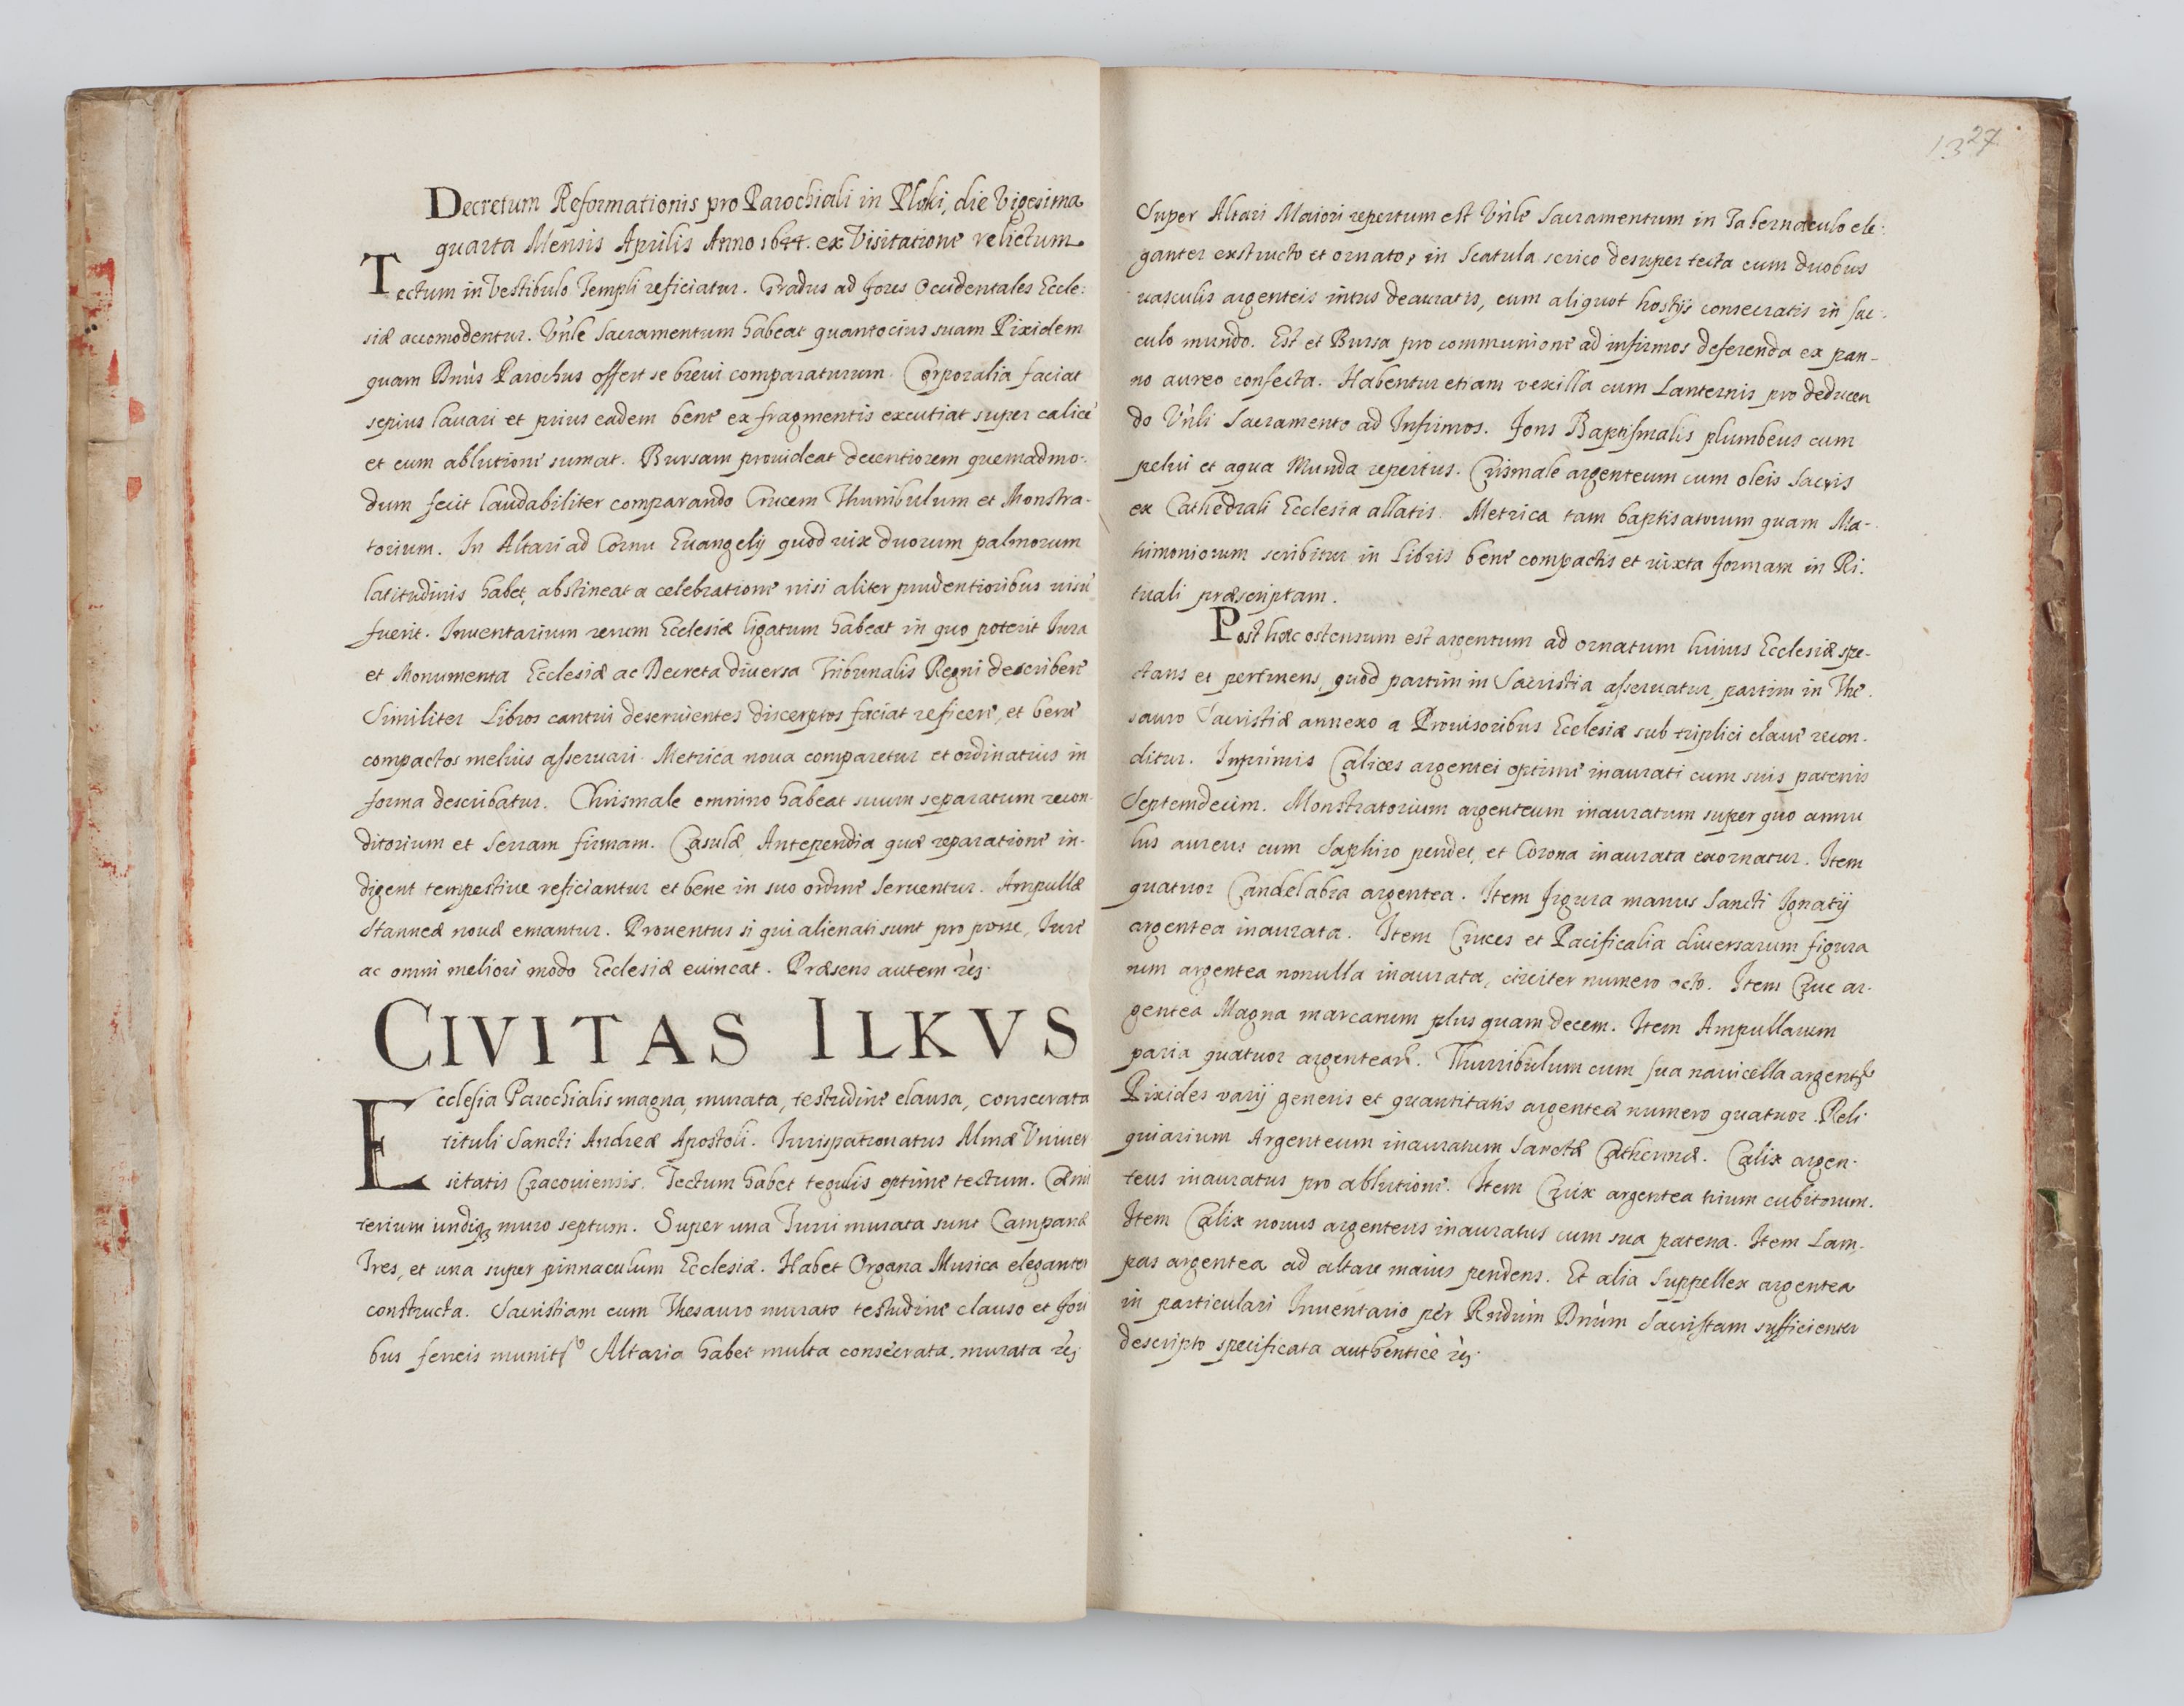 Decretum Reformationis pro Parochiali in Ploki, die Vigesima
quarta Mensis Aprilis Anno 1644. ex Visitatione relictum
Tectum in Vestibulo Templi reficiatur. Gradus ad fores Occidentales Eccle:
siæ accomodentur. Vn̄le Sacramentum habeat quantocius suam Pixidem
quam Dn̄us Parochus offert se breui comparaturum. Corporalia faciat
sepius lauari et prius eadem bene ex fragmentis excutiat super calicē
et cum ablutione sumat. Bursam prouideat decentiorem quemadmo-
dum fecit laudabiliter comparando Crucem Thuribulum et Monstra-
torium. In Altari ad Cornu Euangelij quod vix duorum palmorum
latitudinis habet, abstineat a celebratione nisi aliter prudentioribus uisū
fuerit. Inuentarium rerum Ecclesiæ ligatum habeat in quo poterit Iura
et Monumenta Ecclesiæ ac Decreta diuersa Tribunalis Regni describere
Similiter Libros cantui deseruientes discerptos faciat reficere, et bene
compactos melius asseruari. Metrica noua comparetur et ordinatius in
forma describatur. Chrismale omnino habeat suum separatum recon-
ditorium et Serram firmam. Casulæ, Antependia quæ reparatione in-
digent tempestiue reficiantur et bene in suo ordine Seruentur. Ampullæ
Stanneæ nouæ emantur. Prouentus si qui alienati sunt pro posse, Iure
ac omni meliori modo Ecclesiæ euincat. Præsens autem etc.
CIVITAS ILKVS
Ecclesia Parochialis magna, murata, testudine clausa, consecrata
tituli Sancti Andreæ Apostoli. Iurispatronatus Almæ Vniuer
sitatis Cracouiensis. Tectum habet tegulis optime tectum. Cæmi
terium undiq3 muro septum. Super una Turri murata sunt Campanæ
Tres, et una super pinnaculum Ecclesiæ. Habet Organa Musica eleganter
constructa. Sacristiam cum Thesauro murato testudine clauso et fori
bus ferreis munito Altaria habet multa consecrata. murata etc.
1327
Super Altari Maiori repertum est Vn̄le Sacramentum in Tabernaculo ele:
ganter exstructo et ornato, in Scatula serico desuper tecta cum duobus
vasculis argenteis intus deauratis, cum aliquot hostijs consecratis in sac-
culo mundo. Est et Bursa pro communione ad infirmos deferenda ex pan-
no aureo confecta. Habentur etiam vexilla cum Lanternis pro deducen
do Vn̄li Sacramento ad Infirmos. Fons Baptismalis plumbeus cum
pelui et aqua Munda repertus. Crismale argenteum cum oleis Sacris
ex Cathedrali Ecclesia allatis. Metrica tam baptisatorum quam Ma-
trimoniorum scribitur in Libris bene compactis et iuxta formam in Ri-
tuali præscriptam.
Post hæc ostensum est argentum ad ornatum huius Ecclesiæ spe-
ctans et pertinens, quod partim in Sacristia asseruatur, partim in The-
sauro Sacristiæ annexo a Prouisoribus Ecclesiæ sub triplici claue recon-
ditur. Inprimis Calices argentei optime inaurati cum suis patenis
Septemdecim. Monstratorium argenteum inauratum super quo annu
lus aureus cum Saphiro pendet, et Corona inaurata exornatur. Item
quatuor Candelabra argentea. Item figura manus Sancti Ignatij
argentea inaurata. Item Cruces et Pacificalia diuersarum figura
rum argentea nonulla inaurata, circiter numero octo. Item Crux ar-
gentea Magna marcarum plus quam decem. Item Ampullarum
paria quatuor argentear. Thurribulum cum sua nauicella argent
Pixides varij generis et quantitatis argenteæ numero quatuor. Reli
quiarium Argenteum inauratum Sanctæ Catherinæ. Calix argen-
teus inauratus pro ablutione. Item Crux argentea trium cubitorum.
Item Calix nouus argenteus inauratus cum sua patena. Item Lam-
pas argentea ad altare maius pendens. Et alia Suppellex argentea
in particulari Inuentario per Rn̄dum Dn̄um Sacristam sufficienter
descripto specificata authentice etc.